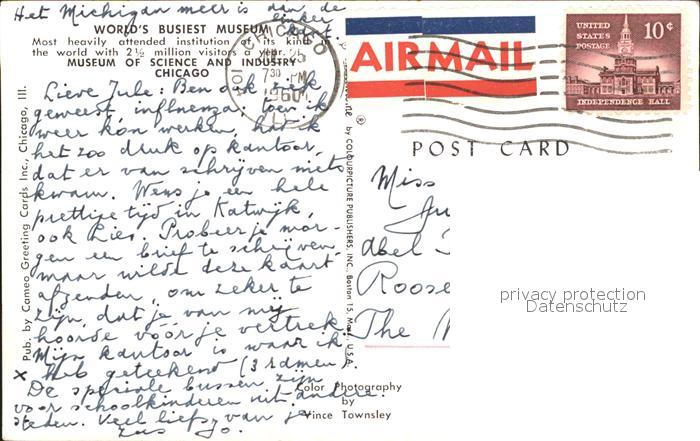 Het Michigan meer is aan de
linker kant.
WORLD'S BUSIEST MUSEUM
Most heavily attended institution of its kind in
the world with 2½ million visitors a year.
MUSEUM OF SCIENCE AND INDUSTRY
CHICAGO
CHICAGO
730 PM
1960
AIR MAIL
UNITED
STATES
POSTAGE
10¢
INDEPENDENCE HALL
POST CARD
Lieve Jule: Ben ook ziek
geweest influenza. toen ik
weer kon werken, had ik
het zoo druk op kantoor,
dat er van schrijven niets
kwam. Wens je een hele
prettige tijd in Katwijk,
ook Lies. Probeer je mor-
gen een brief te schrijven
maar wilde deze kaart
afzenden, om zeker te
zijn, dat je van mij
hoorde vóór je vertrek.
Mijn kantoor is waar ik
x heb getekend (3 ramen).
De speciale bussen zijn
voor schoolkinderen uit andere
steden. Veel liefs van je
zus Jo.
Miss
Ju
abel
Roose
The
Pub. by Cameo Greeting Cards Inc., Chicago, Ill.
by COLOURPICTURE PUBLISHERS, INC., Boston 15, Mass., U.S.A.
Color Photography
by
Vince Townsley
privacy protection
Datenschutz